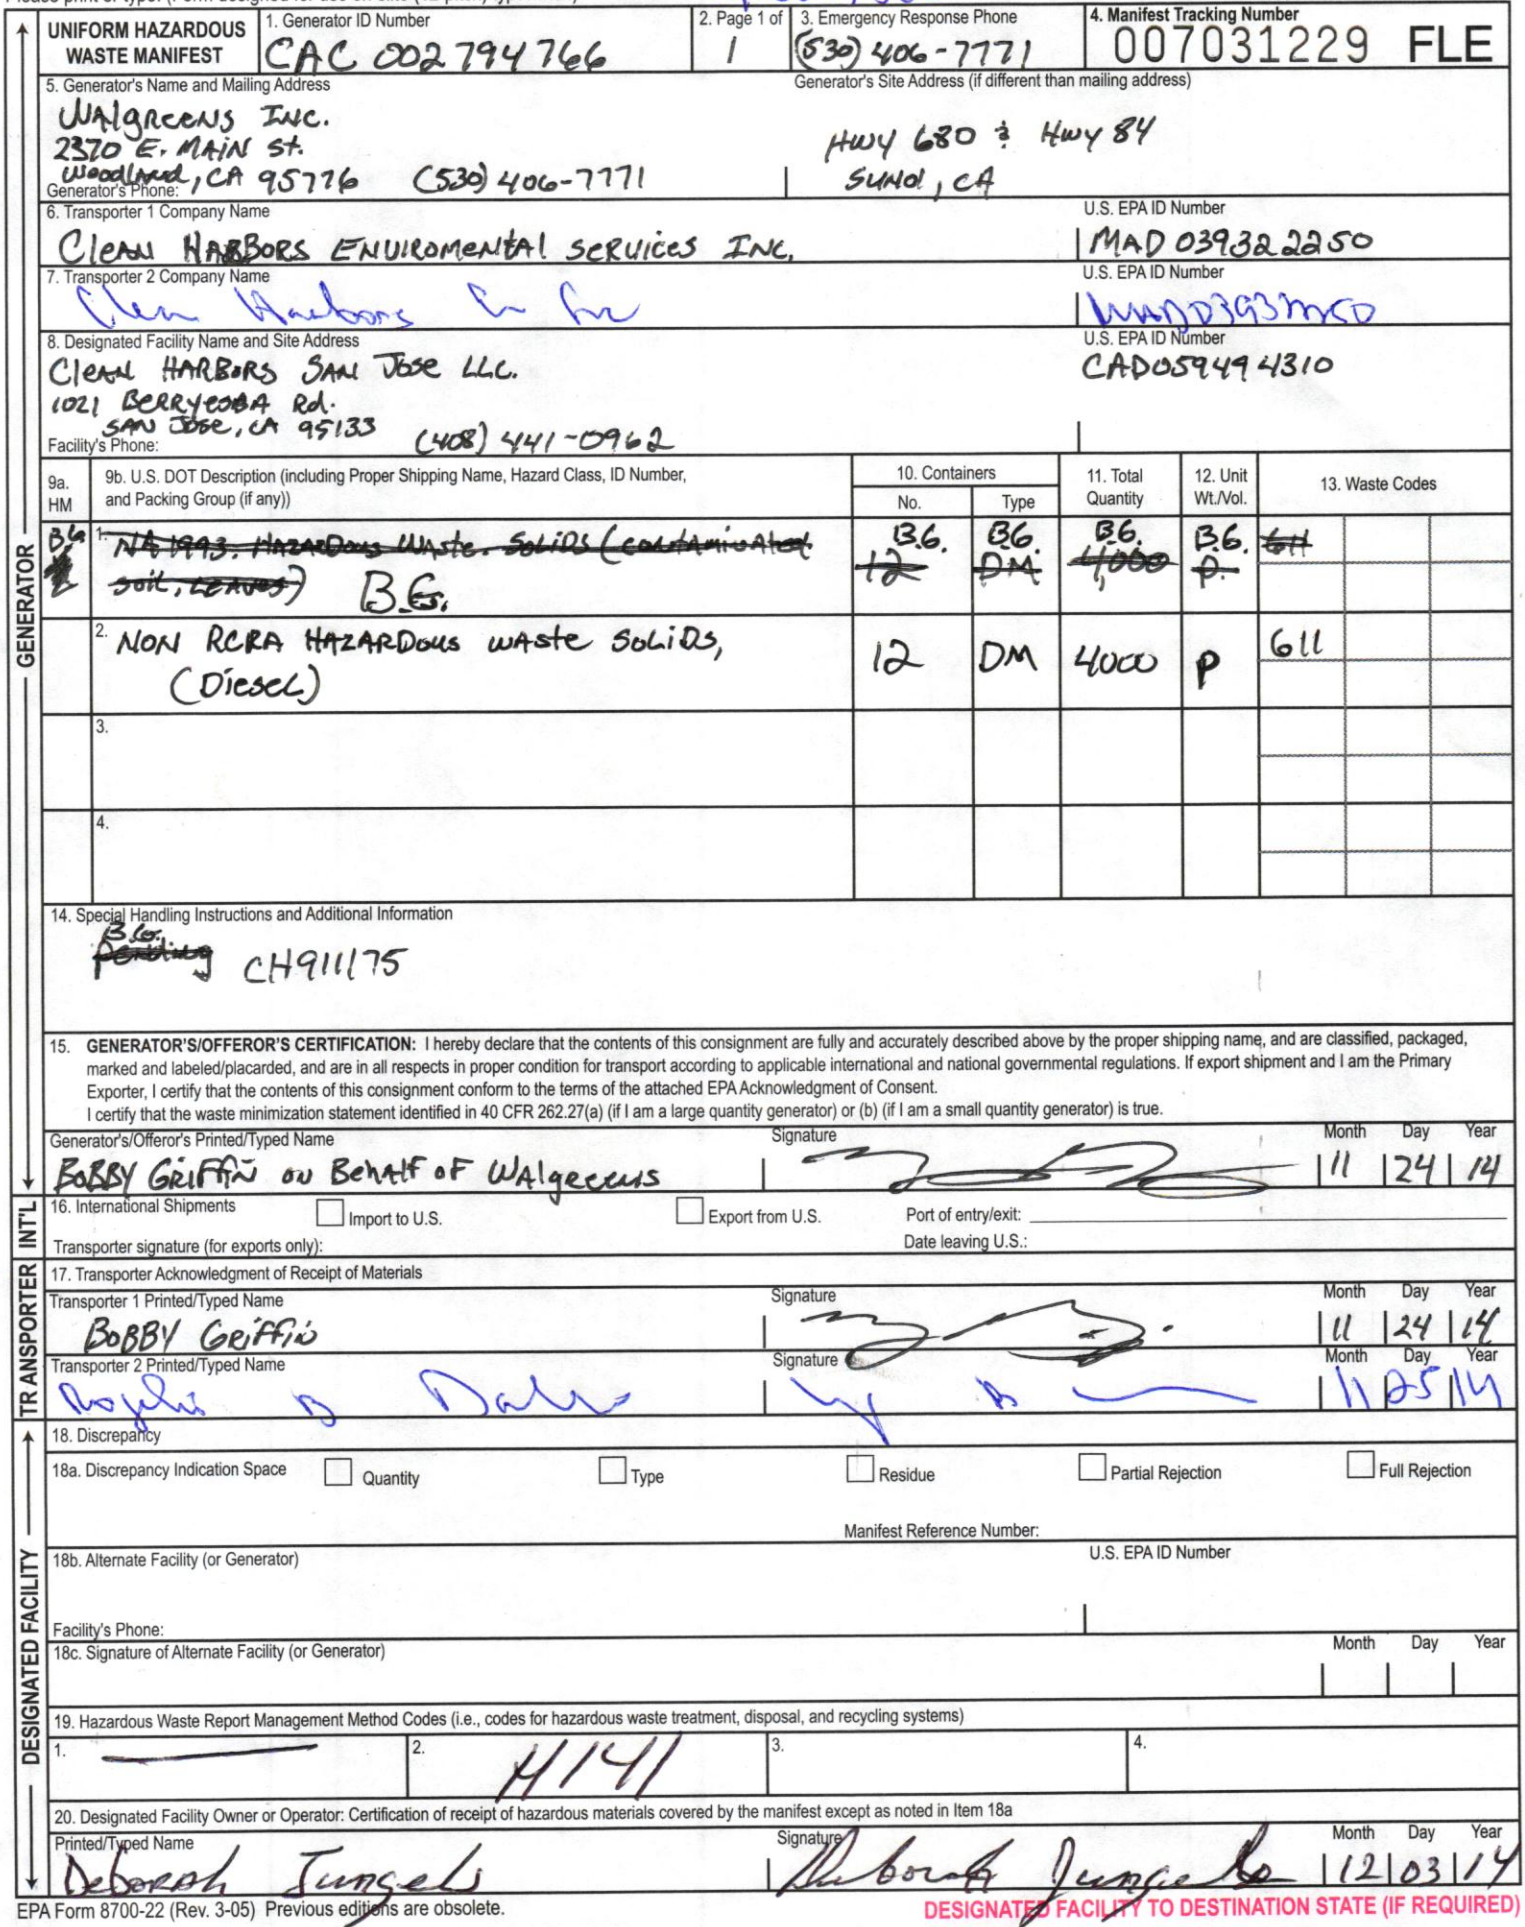 UNIFORM HAZARDOUS WASTE MANIFEST
1. Generator ID Number
CAC 002794766
2. Page 1 of
1
3. Emergency Response Phone
(530) 406-7771
4. Manifest Tracking Number
007031229 FLE
5. Generator's Name and Mailing Address
Walgreens Inc.
2370 E. Main St.
Woodland, CA 95776 (530) 406-7771
Generator's Phone:
Generator's Site Address (if different than mailing address)
Hwy 680 & Hwy 84
Sunol, CA
6. Transporter 1 Company Name
Clean Harbors Enviromental Services Inc.
U.S. EPA ID Number
MAD 039322250
7. Transporter 2 Company Name
Clean Harbors
U.S. EPA ID Number
8. Designated Facility Name and Site Address
Clean Harbors San Jose LLC.
1021 Berryessa Rd.
San Jose, CA 95133 (408) 441-0962
Facility's Phone:
U.S. EPA ID Number
CAD059494310
GENERATOR
9a. HM
9b. U.S. DOT Description (including Proper Shipping Name, Hazard Class, ID Number,
and Packing Group (if any))
10. Containers
No.
Type
11. Total Quantity
12. Unit Wt./Vol.
13. Waste Codes
B.G.
1. NA 1993, Hazardous Waste, Solids (contaminated
soil, leaves) B.G.
B.G. B.G. B.G. B.G.
12 DM 4,000 P. 611
2. Non RCRA Hazardous Waste Solids,
(Diesel)
12 DM 4000 P 611
3.
4.
14. Special Handling Instructions and Additional Information
B.G.
pending CH911175
15. GENERATOR'S/OFFEROR'S CERTIFICATION: I hereby declare that the contents of this consignment are fully and accurately described above by the proper shipping name, and are classified, packaged,
marked and labeled/placarded, and are in all respects in proper condition for transport according to applicable international and national governmental regulations. If export shipment and I am the Primary
Exporter, I certify that the contents of this consignment conform to the terms of the attached EPA Acknowledgment of Consent.
I certify that the waste minimization statement identified in 40 CFR 262.27(a) (if I am a large quantity generator) or (b) (if I am a small quantity generator) is true.
Generator's/Offeror's Printed/Typed Name
Signature
Month Day Year
Bobby Griffin on Behalf of Walgreens
11 24 14
INT'L
16. International Shipments
Import to U.S.
Export from U.S.
Port of entry/exit:
Transporter signature (for exports only):
Date leaving U.S.:
TRANSPORTER
17. Transporter Acknowledgment of Receipt of Materials
Transporter 1 Printed/Typed Name
Signature
Month Day Year
Bobby Griffin
11 24 14
Transporter 2 Printed/Typed Name
Signature
Month Day Year
11 25 14
DESIGNATED FACILITY
18. Discrepancy
18a. Discrepancy Indication Space
Quantity
Type
Residue
Partial Rejection
Full Rejection
Manifest Reference Number:
18b. Alternate Facility (or Generator)
U.S. EPA ID Number
Facility's Phone:
18c. Signature of Alternate Facility (or Generator)
Month Day Year
19. Hazardous Waste Report Management Method Codes (i.e., codes for hazardous waste treatment, disposal, and recycling systems)
1.
2. H141
3.
4.
20. Designated Facility Owner or Operator: Certification of receipt of hazardous materials covered by the manifest except as noted in Item 18a
Printed/Typed Name
Signature
Month Day Year
Deborah Jungels
Deborah Jungels
12 03 14
EPA Form 8700-22 (Rev. 3-05) Previous editions are obsolete.
DESIGNATED FACILITY TO DESTINATION STATE (IF REQUIRED)